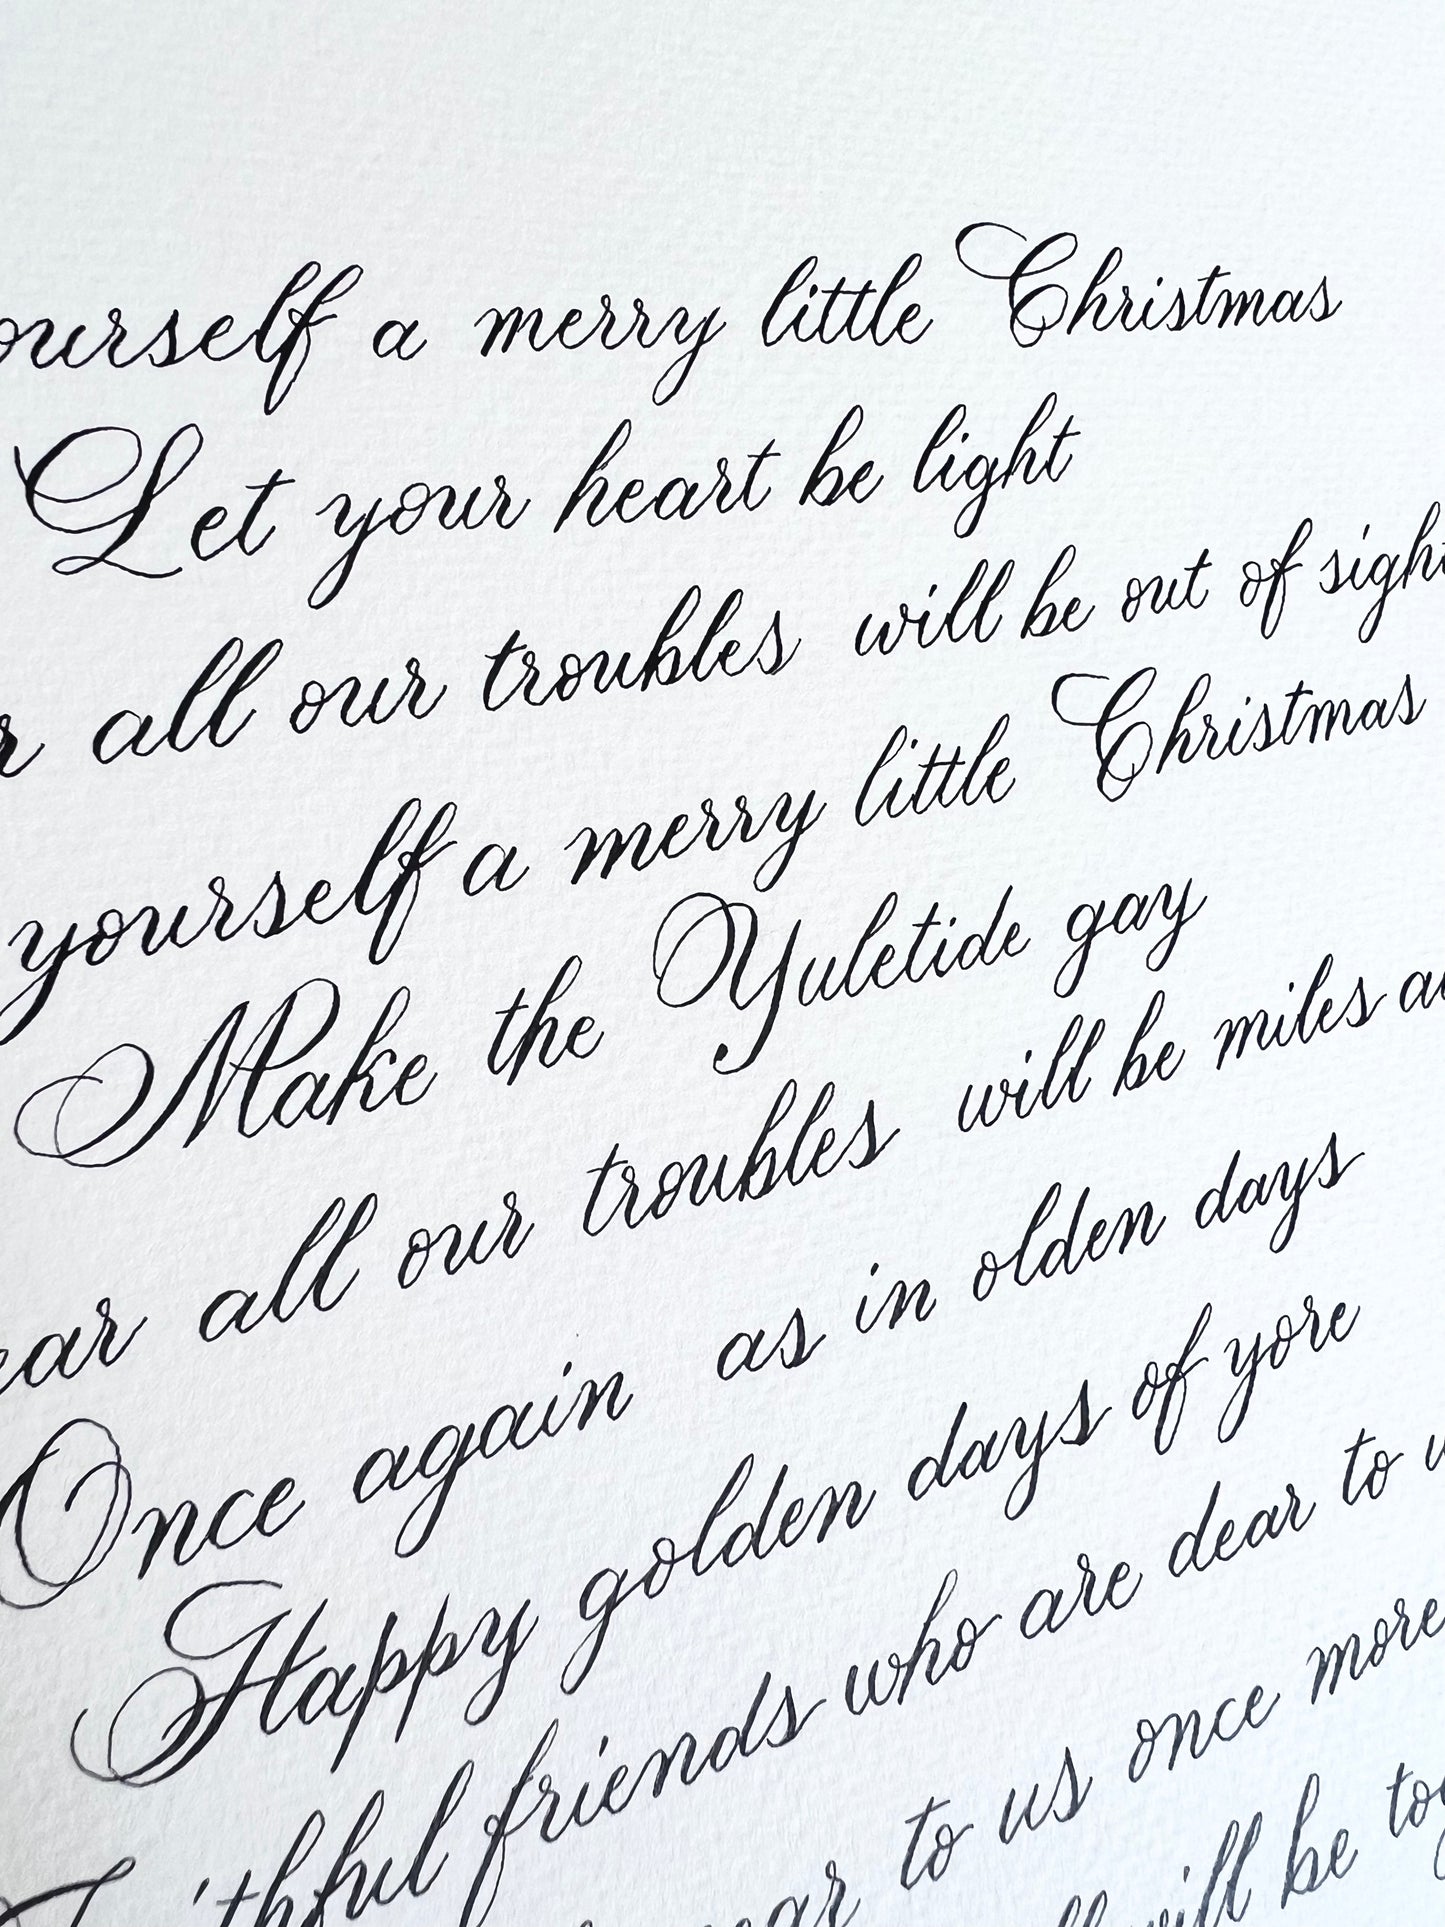 ourself a merry little Christmas
Let your heart be light
r all our troubles will be out of sight
yourself a merry little Christmas
Make the Yuletide gay
ear all our troubles will be miles a
Once again as in olden days
Happy golden days of yore
Faithful friends who are dear to u
ear to us once more
ll will be tog